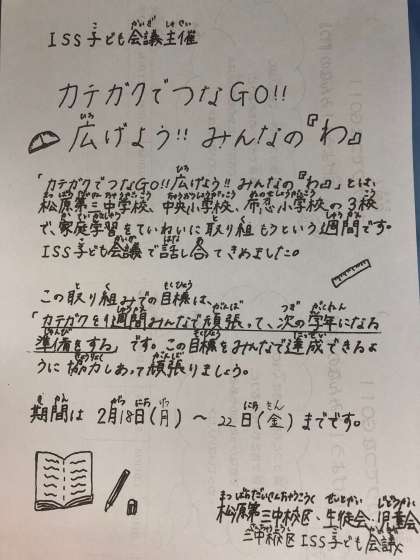 ISS子ども会議主催
カテガクでつなGO!!
広げよう!! みんなの『わ』
「カテガクでつなGO!!広げよう!! みんなの『わ』」とは、
松原第三中学校、中央小学校、布忍小学校の3校
で、家庭学習をていねいに取り組もうという週間です。
ISS子ども会議で話し合ってきめました。
この取り組みでの目標は、
「カテガクを1週間みんなで頑張って、次の学年になる
準備をする」です。この目標をみんなで達成できるよ
うに協力しあって頑張りましょう。
期間は 2月18日(月) ～ 22日(金) までです。
松原第三中校区、生徒会・児童会
三中校区ISS子ども会議